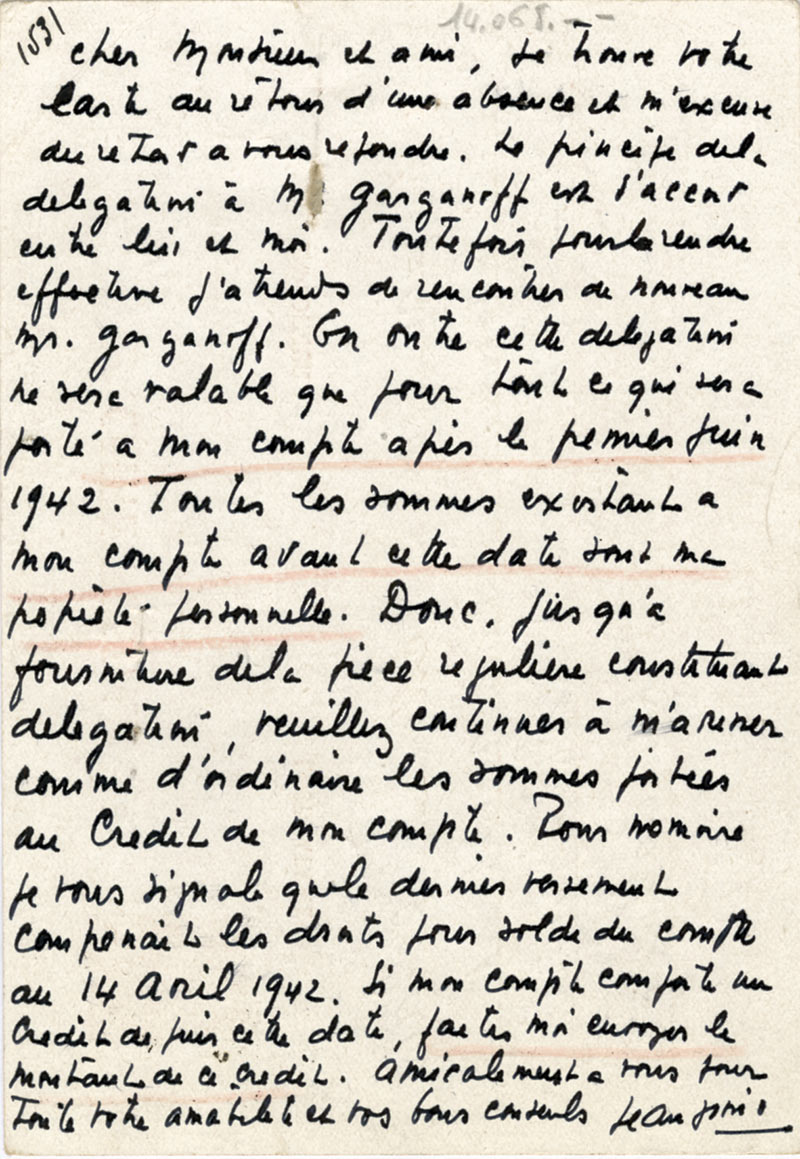 1531
14.065.--
Cher Monsieur et ami, Je trouve votre
Carte au retour d'une absence et m'excuse
du retard a vous repondre. Le principe de la
delegation à M. Garganoff est d'accord
entre lui et moi. Toutefois pour la rendre
effective j'attends de rencontrer de nouveau
Mr. Garganoff. En outre cette delegation
ne sera valable que pour tout ce qui sera
porté a mon compte après le premier Juin
1942. Toutes les sommes existant a
mon compte avant cette date sont ma
propriété personnelle. Donc, jusqu'a
fourniture de la piece reguliere constituant
delegation, veuillez continuer à m'adresser
comme d'ordinaire les sommes portées
au Credit de mon compte. Pour memoire
je vous signale que le dernier versement
comprenait les droits pour solde du compte
au 14 Avril 1942. Si mon compte comporte un
Credit depuis cette date, faites moi envoyer le
montant de ce credit. Amicalement a vous pour
toute votre amabilite et vos bons conseils Jean